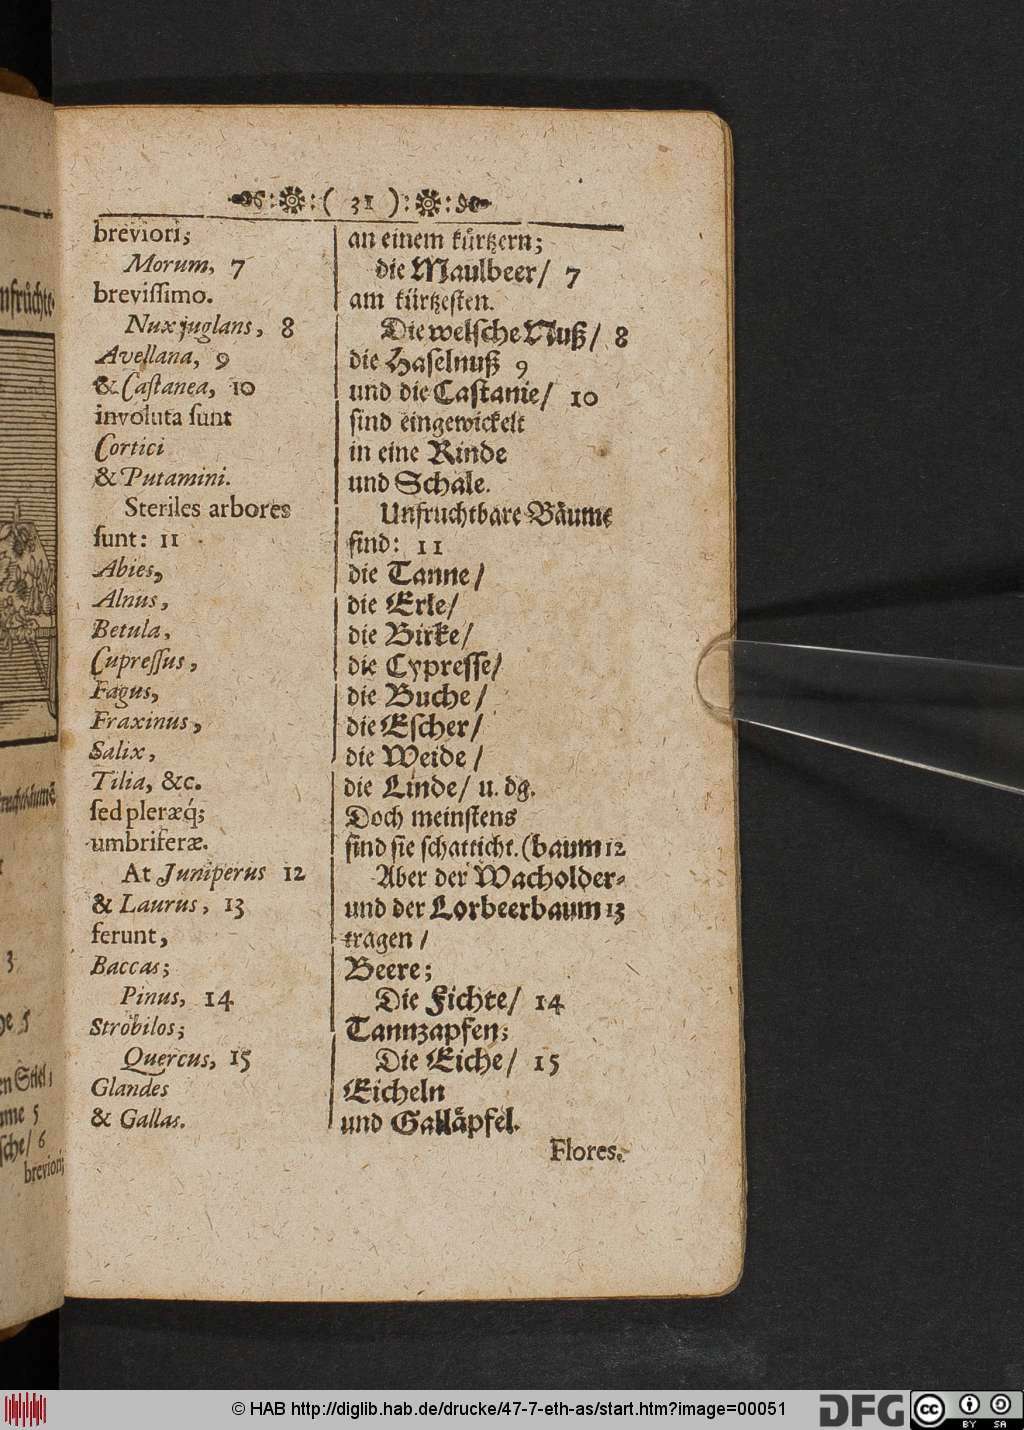 ( 31 )
breviori;
Morum, 7
brevissimo.
Nux juglans, 8
Avellana, 9
& Castanea, 10
involuta sunt
Cortici
& Putamini.
Steriles arbores
sunt: 11
Abies,
Alnus,
Betula,
Cupressus,
Fagus,
Fraxinus,
Salix,
Tilia, &c.
sed pleræq́;
umbriferæ.
At Juniperus 12
& Laurus, 13
ferunt,
Baccas;
Pinus, 14
Strobilos;
Quercus, 15
Glandes
& Gallas.
an einem kürtzern;
die Maulbeer/ 7
am kürtzesten.
Die welsche Nuß/ 8
die Haselnuß 9
und die Castanie/ 10
sind eingewickelt
in eine Rinde
und Schale.
Unfruchtbare Bäume
sind: 11
die Tanne/
die Erle/
die Birke/
die Cypresse/
die Buche/
die Escher/
die Weide/
die Linde/ u. dg.
Doch meinstens
sind sie schatticht. (baum 12
Aber der Wacholder-
und der Lorbeerbaum 13
tragen/
Beere;
Die Fichte/ 14
Tannzapfen;
Die Eiche/ 15
Eicheln
und Galläpfel.
Flores.
3
en Stiel;
breviori;
© HAB http://diglib.hab.de/drucke/47-7-eth-as/start.htm?image=00051
DFG
cc BY SA